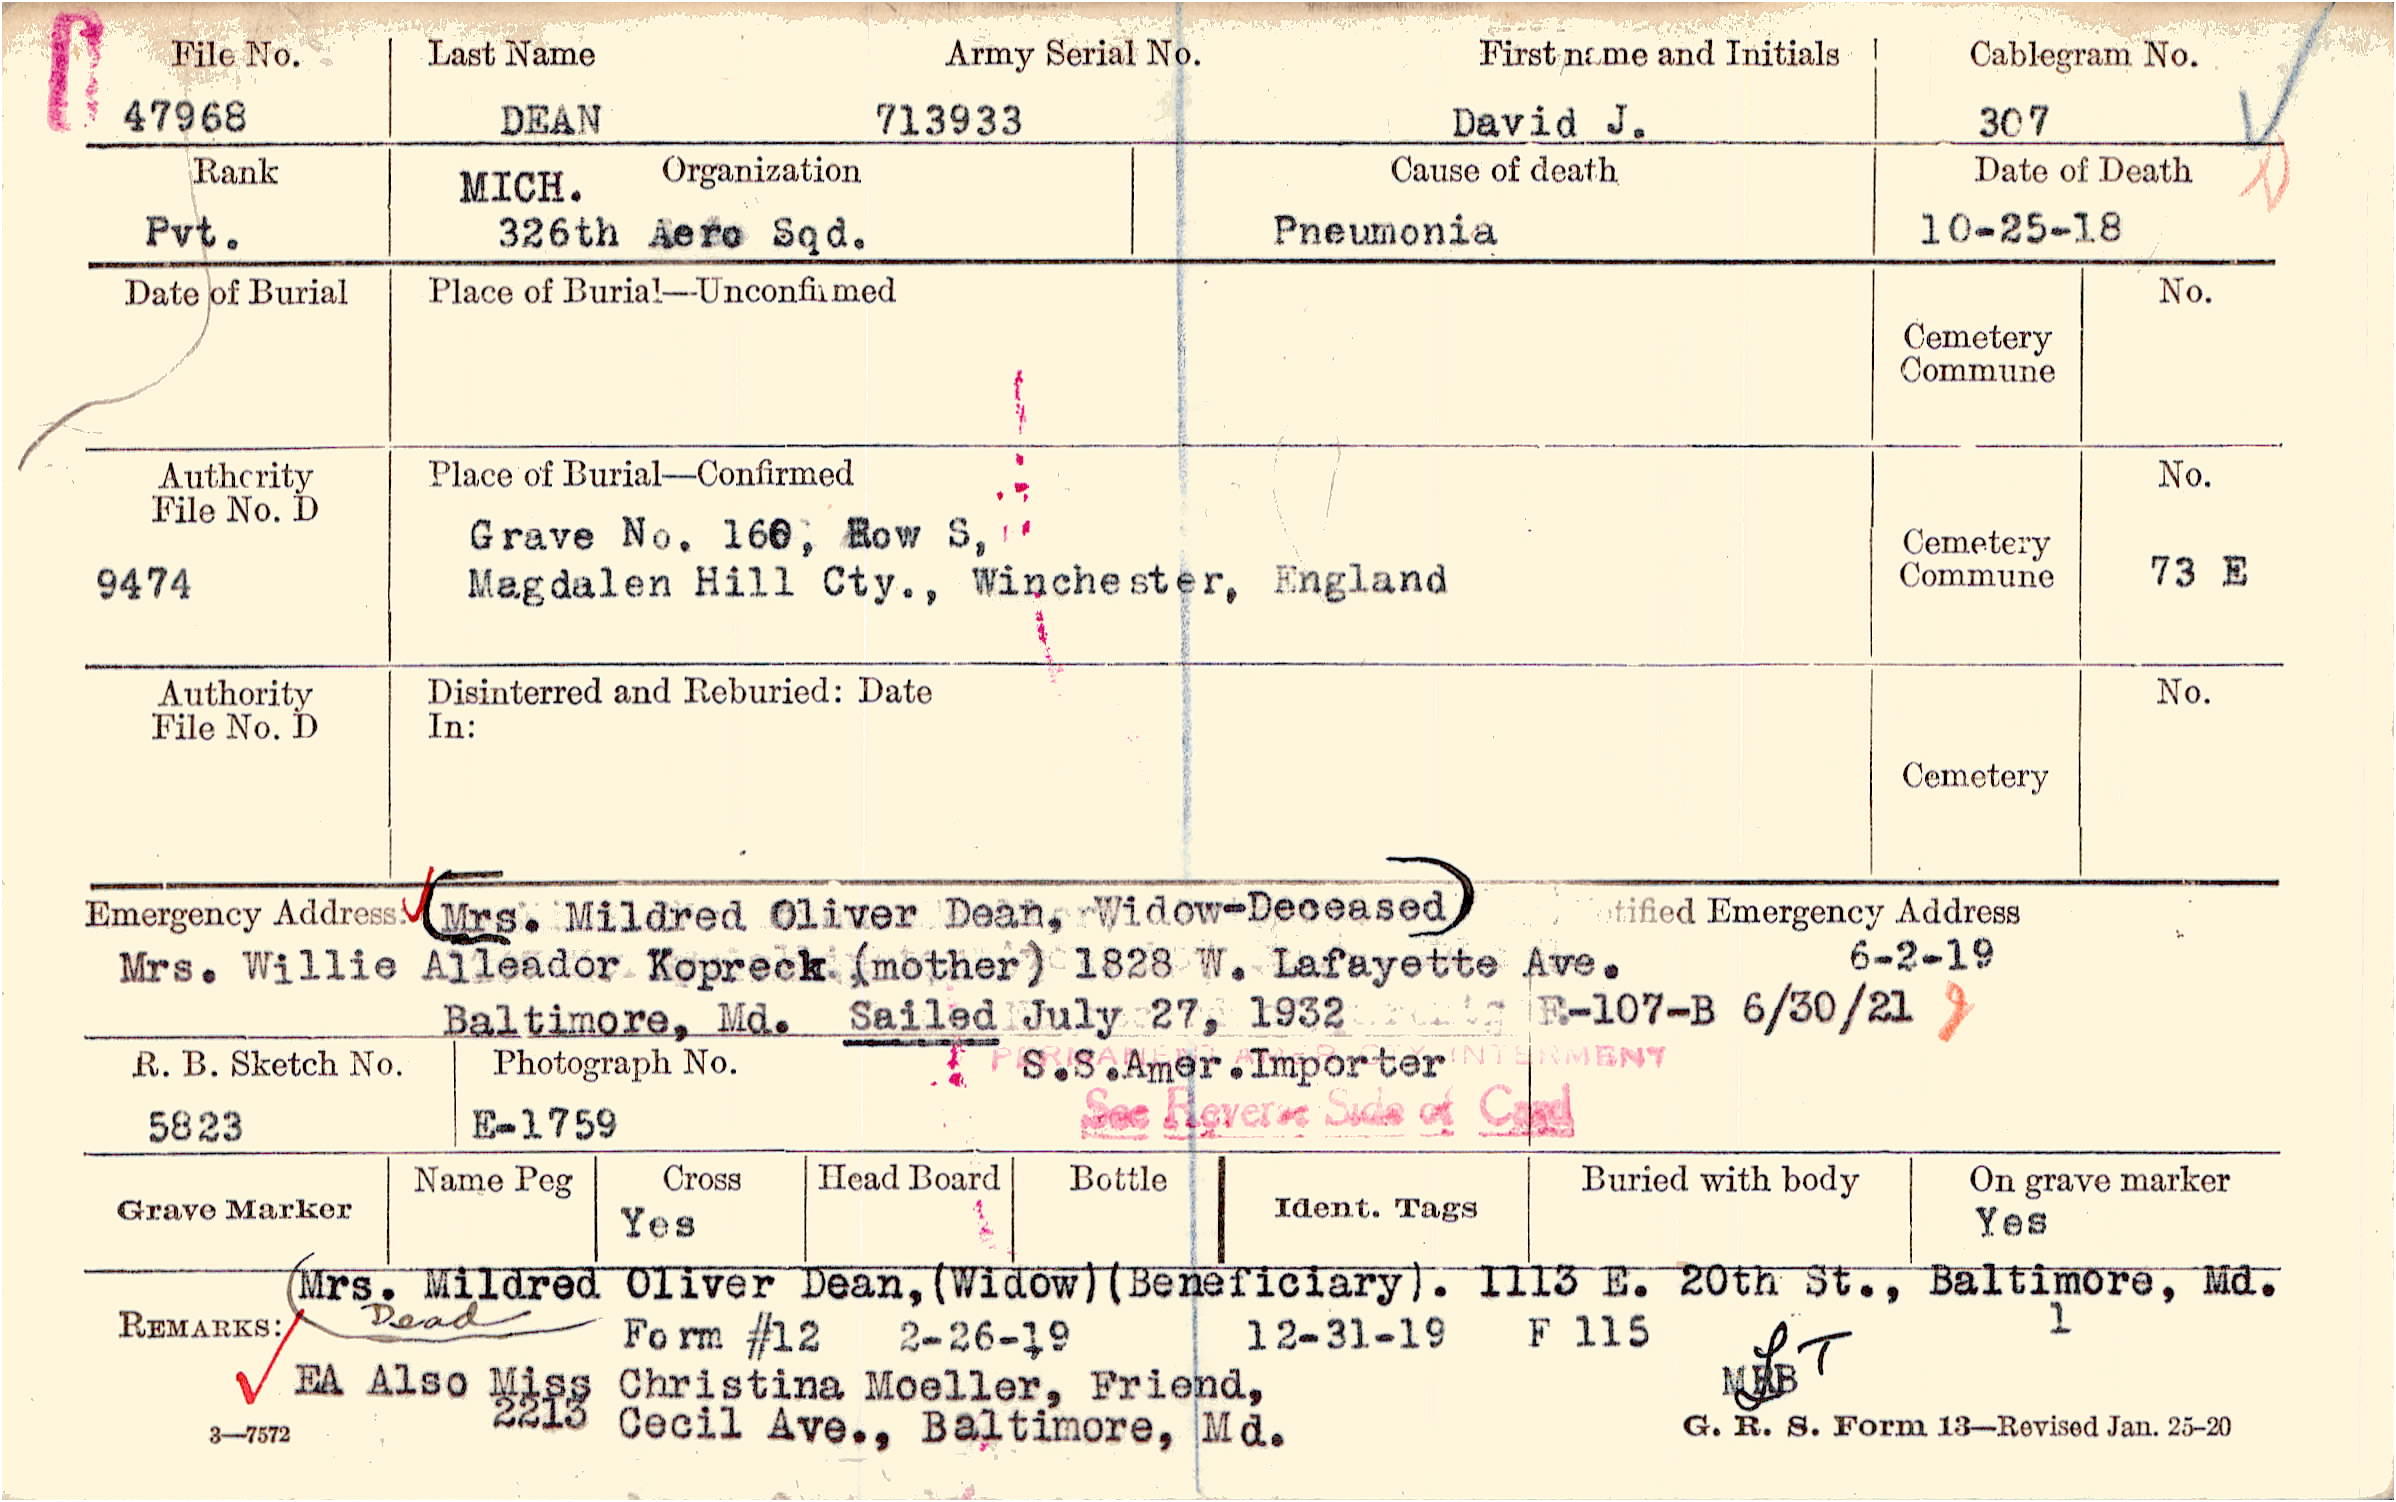 File No. Last Name Army Serial No. First name and Initials Cablegram No.
47968 DEAN 713933 David J. 307
Rank Organization Cause of death Date of Death
MICH.
Pvt. 326th Aero Sqd. Pneumonia 10-25-18
Date of Burial Place of Burial—Unconfirmed No.
Cemetery
Commune
Authority Place of Burial—Confirmed No.
File No. D
Grave No. 160, Row S,
Cemetery
9474 Magdalen Hill Cty., Winchester, England Commune 73 E
Authority Disinterred and Reburied: Date No.
File No. D In:
Cemetery
Emergency Address: (Mrs. Mildred Oliver Dean, Widow-Deceased) Emergency Address
Mrs. Willie Alleador Kopreck (mother) 1828 W. Lafayette Ave. 6-2-19
Baltimore, Md. Sailed July 27, 1932 E-107-B 6/30/21
R. B. Sketch No. Photograph No. S.S.Amer.Importer
PERMANENT AMER. CTY. INTERMENT
See Reverse Side of Card
5823 E-1759
Grave Marker Name Peg Cross Head Board Bottle Ident. Tags Buried with body On grave marker
Yes Yes
Mrs. Mildred Oliver Dean,(Widow)(Beneficiary). 1113 E. 20th St., Baltimore, Md.
Dead
REMARKS: Form #12 2-26-19 12-31-19 F 115 1
EA Also Miss Christina Moeller, Friend,
2213 Cecil Ave., Baltimore, Md.
3—7572 G. R. S. Form 13—Revised Jan. 25-20